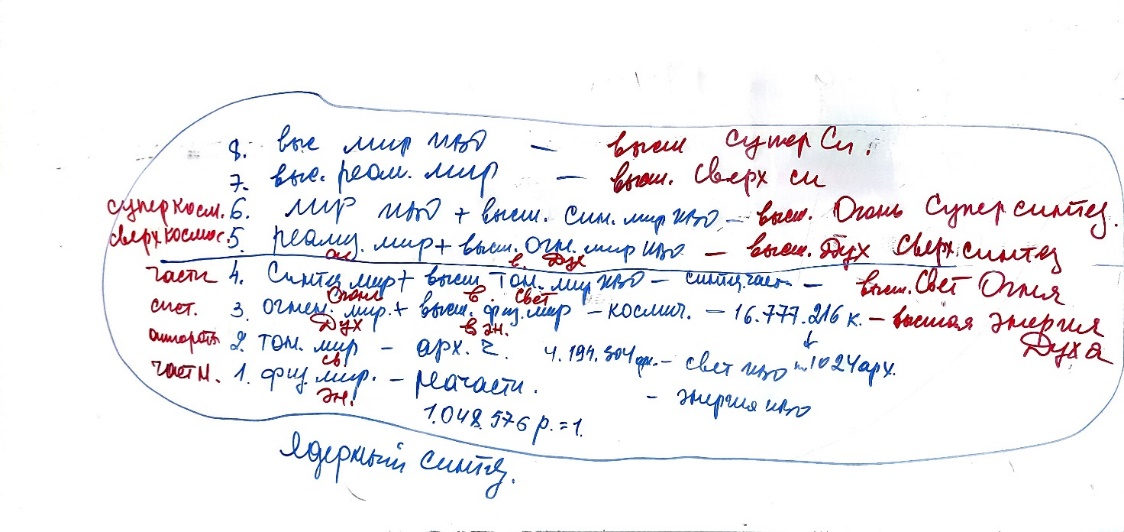 8. выс мир ИВО — высш Супер Си.
7. выс. реал. мир — высш. Сверх си
супер косм. 6. мир ИВО + высш. син. мир ИВО — высш. Огонь Супер синтез.
сверх космос 5. реали. мир + высш. Огн. мир ИВО — высш. Дух Сверх синтез
в. Дух
части 4. Синтез мир + высш Тон. мир ИВО — синтез част — высш. Свет Огня
Огонь в. Свет
сист. 3. огнен. мир. + высш. физ. мир — космич. — 16.777.216 к. — высшая энергия Духа
Дух в эн.
аппараты 2. тон. мир — арх. ч. 4.194.304 — свет ИВО 1024 арх.
св.
частн. 1. физ. мир. — реачасти. — энергия ИВО
эн.
1.048.576 р. = 1.
Ядерный синтез.